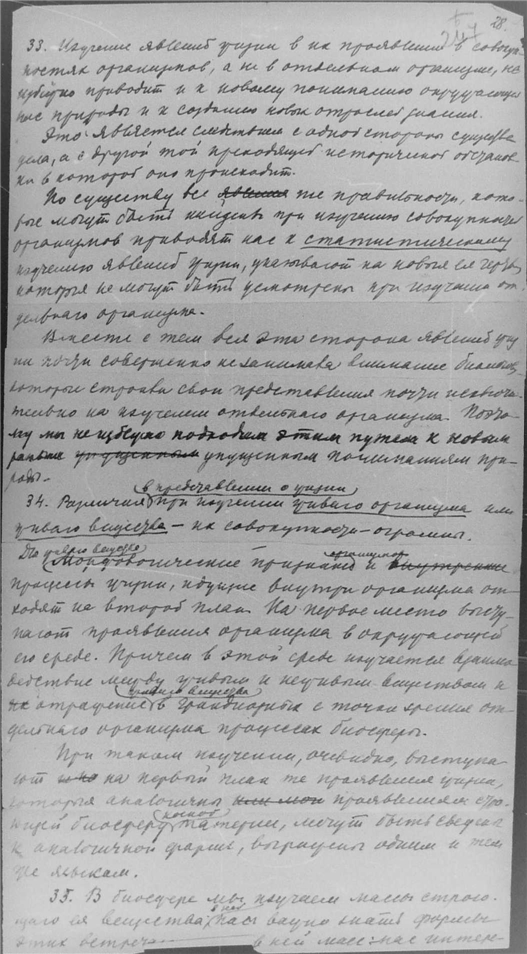 28.
247
33. Изучение явлений жизни в их проявлении в совокуп-
ностях организмов, а не в отдельном организме, не-
избежно приводит и к новому пониманию окружающей
нас природы и к созданию новых отраслей знания.
Это является следствием с одной стороны существа
дела, а с другой той преходящей исторической обстанов-
ки в которой оно происходит.
По существу все явления те правильности, кото-
рые могут быть найдены при изучении совокупностей
организмов приводят нас к статистическому
изучению явлений жизни, указывают на новыя ея черты
которыя не могут быть усмотрены при изучении от-
дельнаго организма.
Вместе с тем вся эта сторона явлений жиз-
ни почти совершенно не занимала внимание биологов,
которые строили свои представления почти исключи-
тельно на изучении отдельнаго организма. Поэто-
му мы неизбежно подходим этим путем к новым
раньше упущенным упущенным пониманиям при-
роды.
в представлении о жизни
34. Различия при изучении живого организма или
живого вещества – их совокупности – огромны.
Для живого вещества
Морфологические признаки организмов и внутренние
процессы жизни, идущие внутри организма от-
ходят на второй план. На первое место высту-
пают проявления организма в окружающей
его среде. Причем в этой среде изучается взаимо-
действие между живым и неживым веществом и
их отражение живого вещества в грандиозных с точки зрения от-
дельнаго организма процессах биосферы.
При таком изучении, очевидно, выступа-
ют на первый план те проявления жизни,
которыя аналогичны или мог проявлениям стро-
ющей биосферу косной материи, могут быть сведены
к аналогичной форме, выражены одним и тем
же языком.
35. В биосфере мы изучаем массы строю-
щаго ея вещества; для нас важно знать формы
этих встреч в ней масс: нас интере-